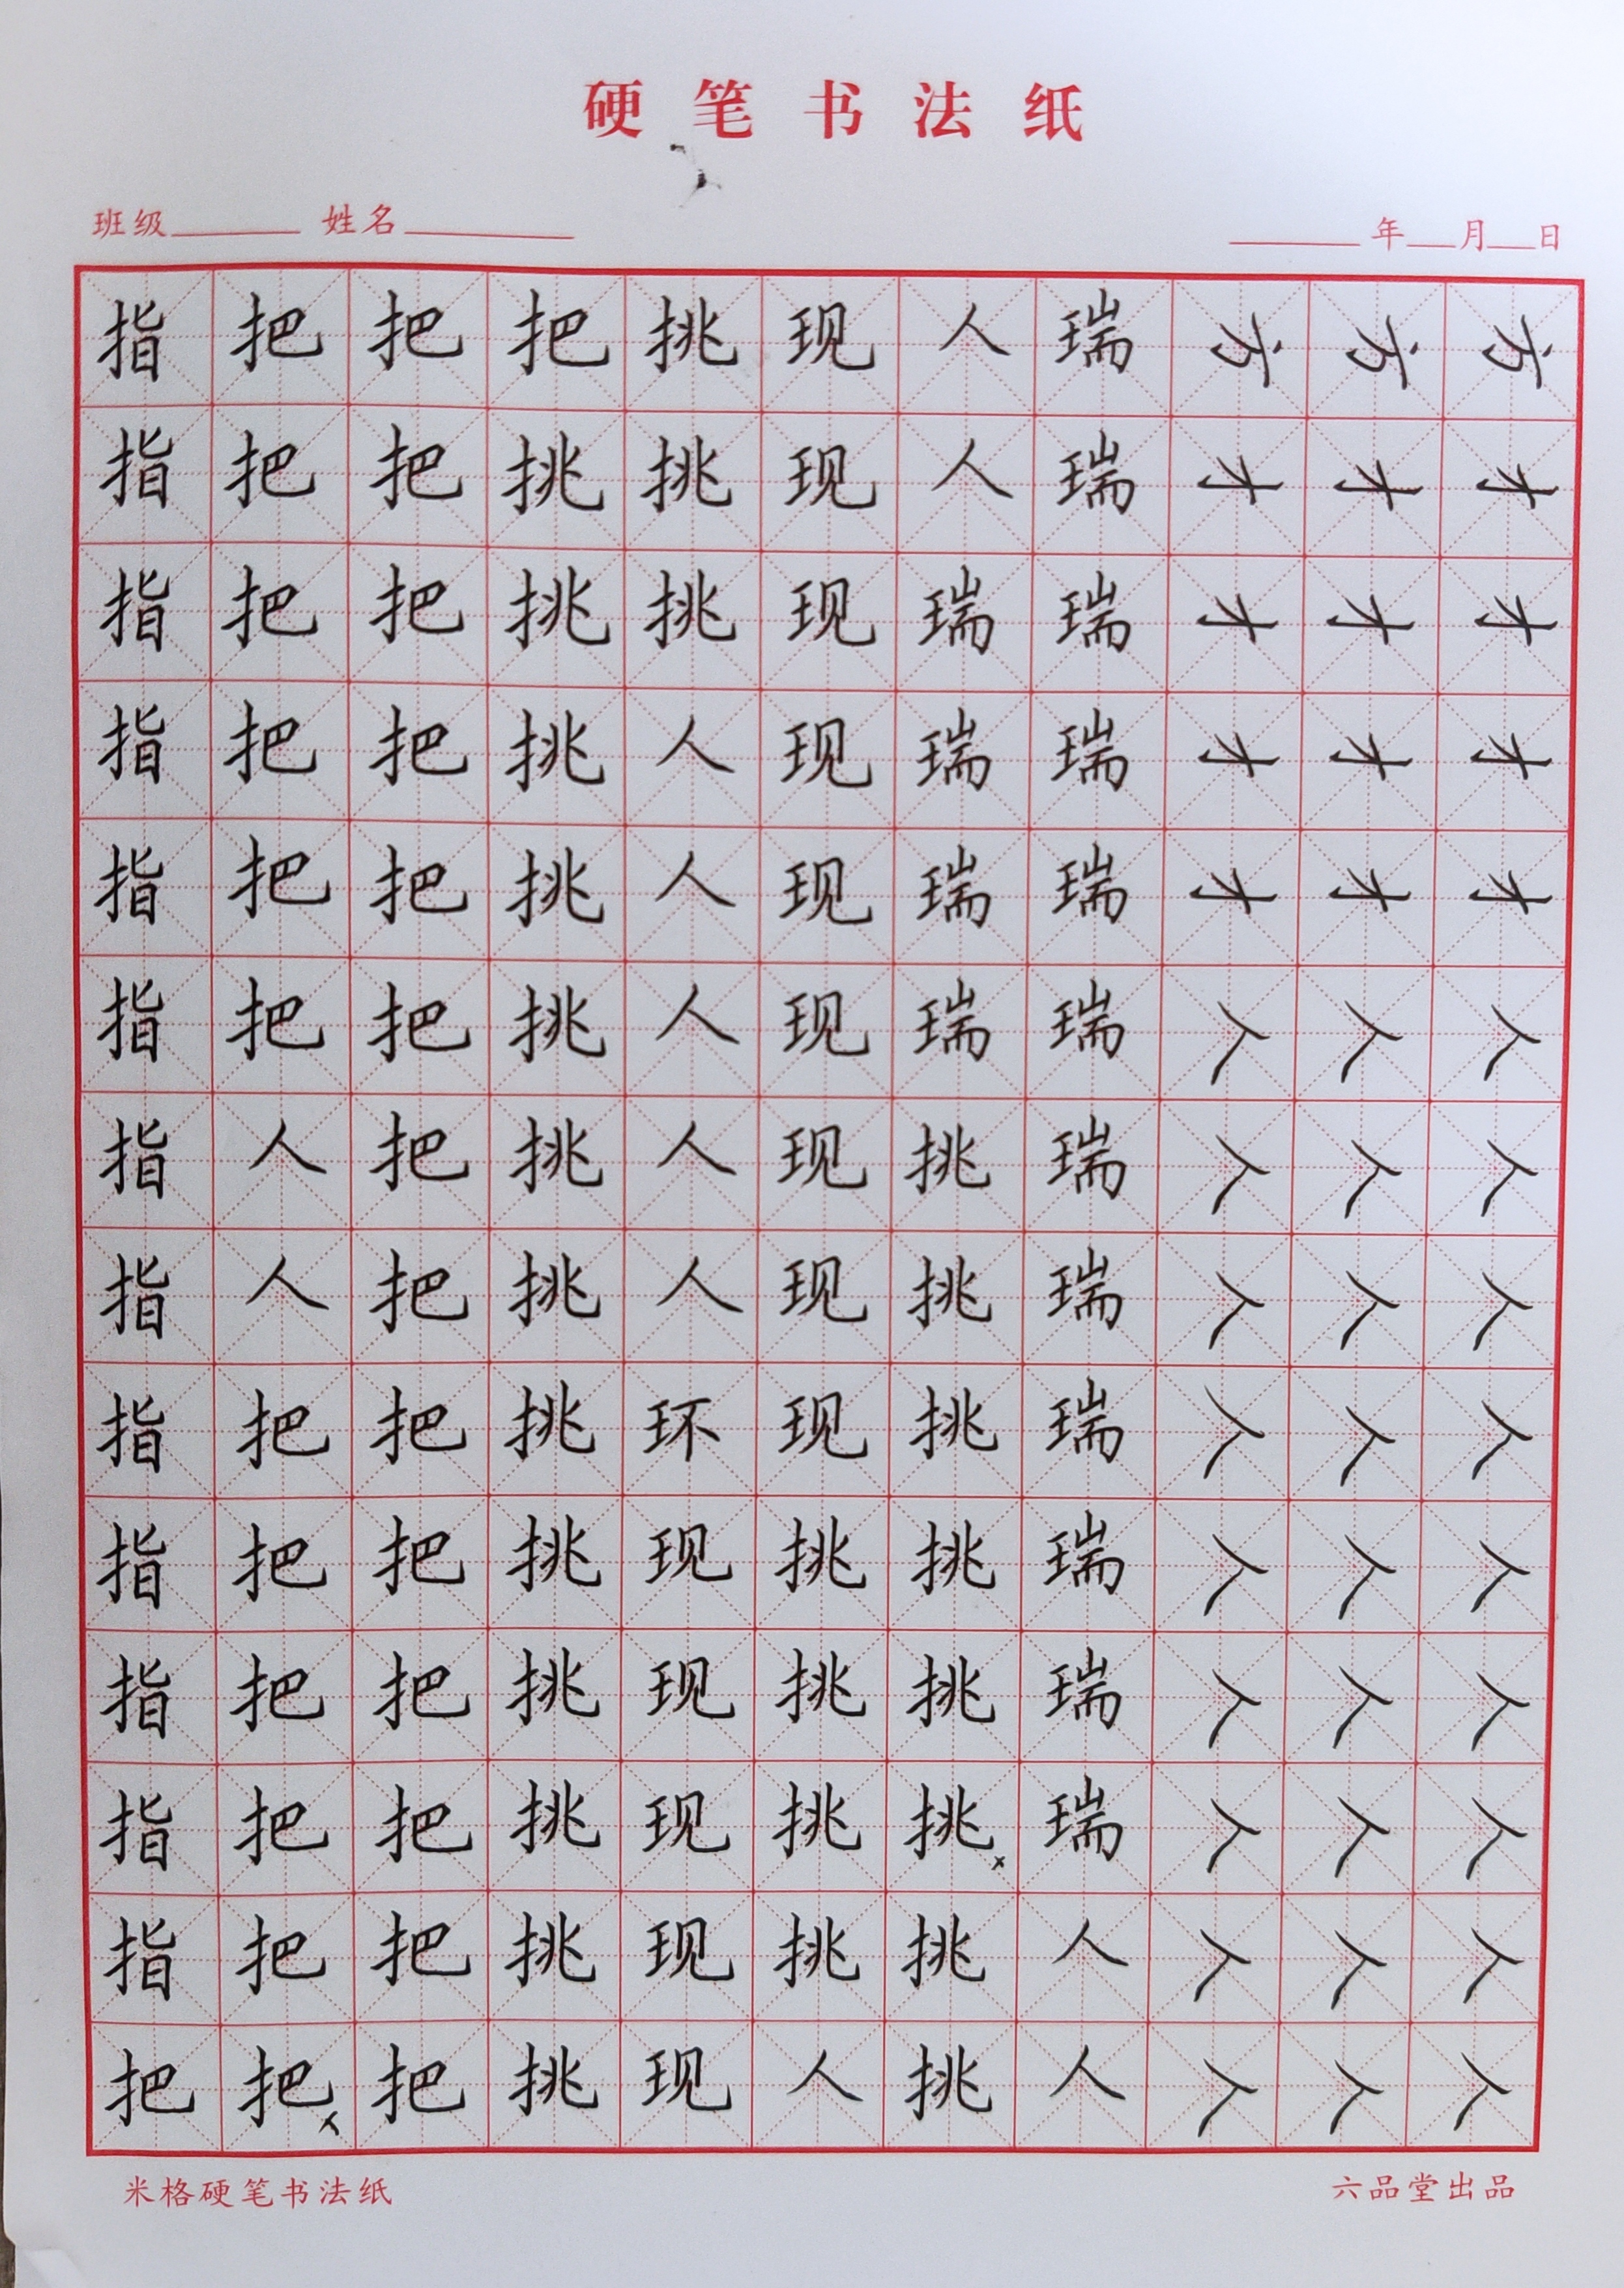 硬笔书法纸
班级 姓名 年 月 日
指 把 把 把 挑 现 人 瑞 方 方 方
指 把 把 挑 挑 现 人 瑞 才 才 才
指 把 把 挑 挑 现 瑞 瑞 才 才 才
指 把 把 挑 人 现 瑞 瑞 才 才 才
指 把 把 挑 人 现 瑞 瑞 才 才 才
指 把 把 挑 人 现 瑞 瑞 人 人 人
指 人 把 挑 人 现 挑 瑞 人 人 人
指 人 把 挑 人 现 挑 瑞 人 人 人
指 把 把 挑 环 现 挑 瑞 人 人 人
指 把 把 挑 现 挑 挑 瑞 人 人 人
指 把 把 挑 现 挑 挑 瑞 人 人 人
指 把 把 挑 现 挑 挑 瑞 人 人 人
指 把 把 挑 现 挑 挑 人 人 人 人
把 把 把 挑 现 人 挑 人 人 人 人
米格硬笔书法纸 六品堂出品